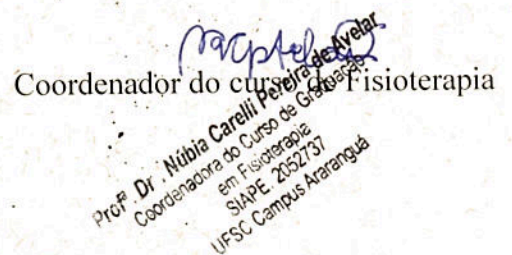 Coordenador do curso de Fisioterapia
Profª. Drª. Núbia Carelli Pereira de Avelar
Coordenadora do Curso de Graduação
em Fisioterapia
SIAPE. 2052737
UFSC Campus Araranguá